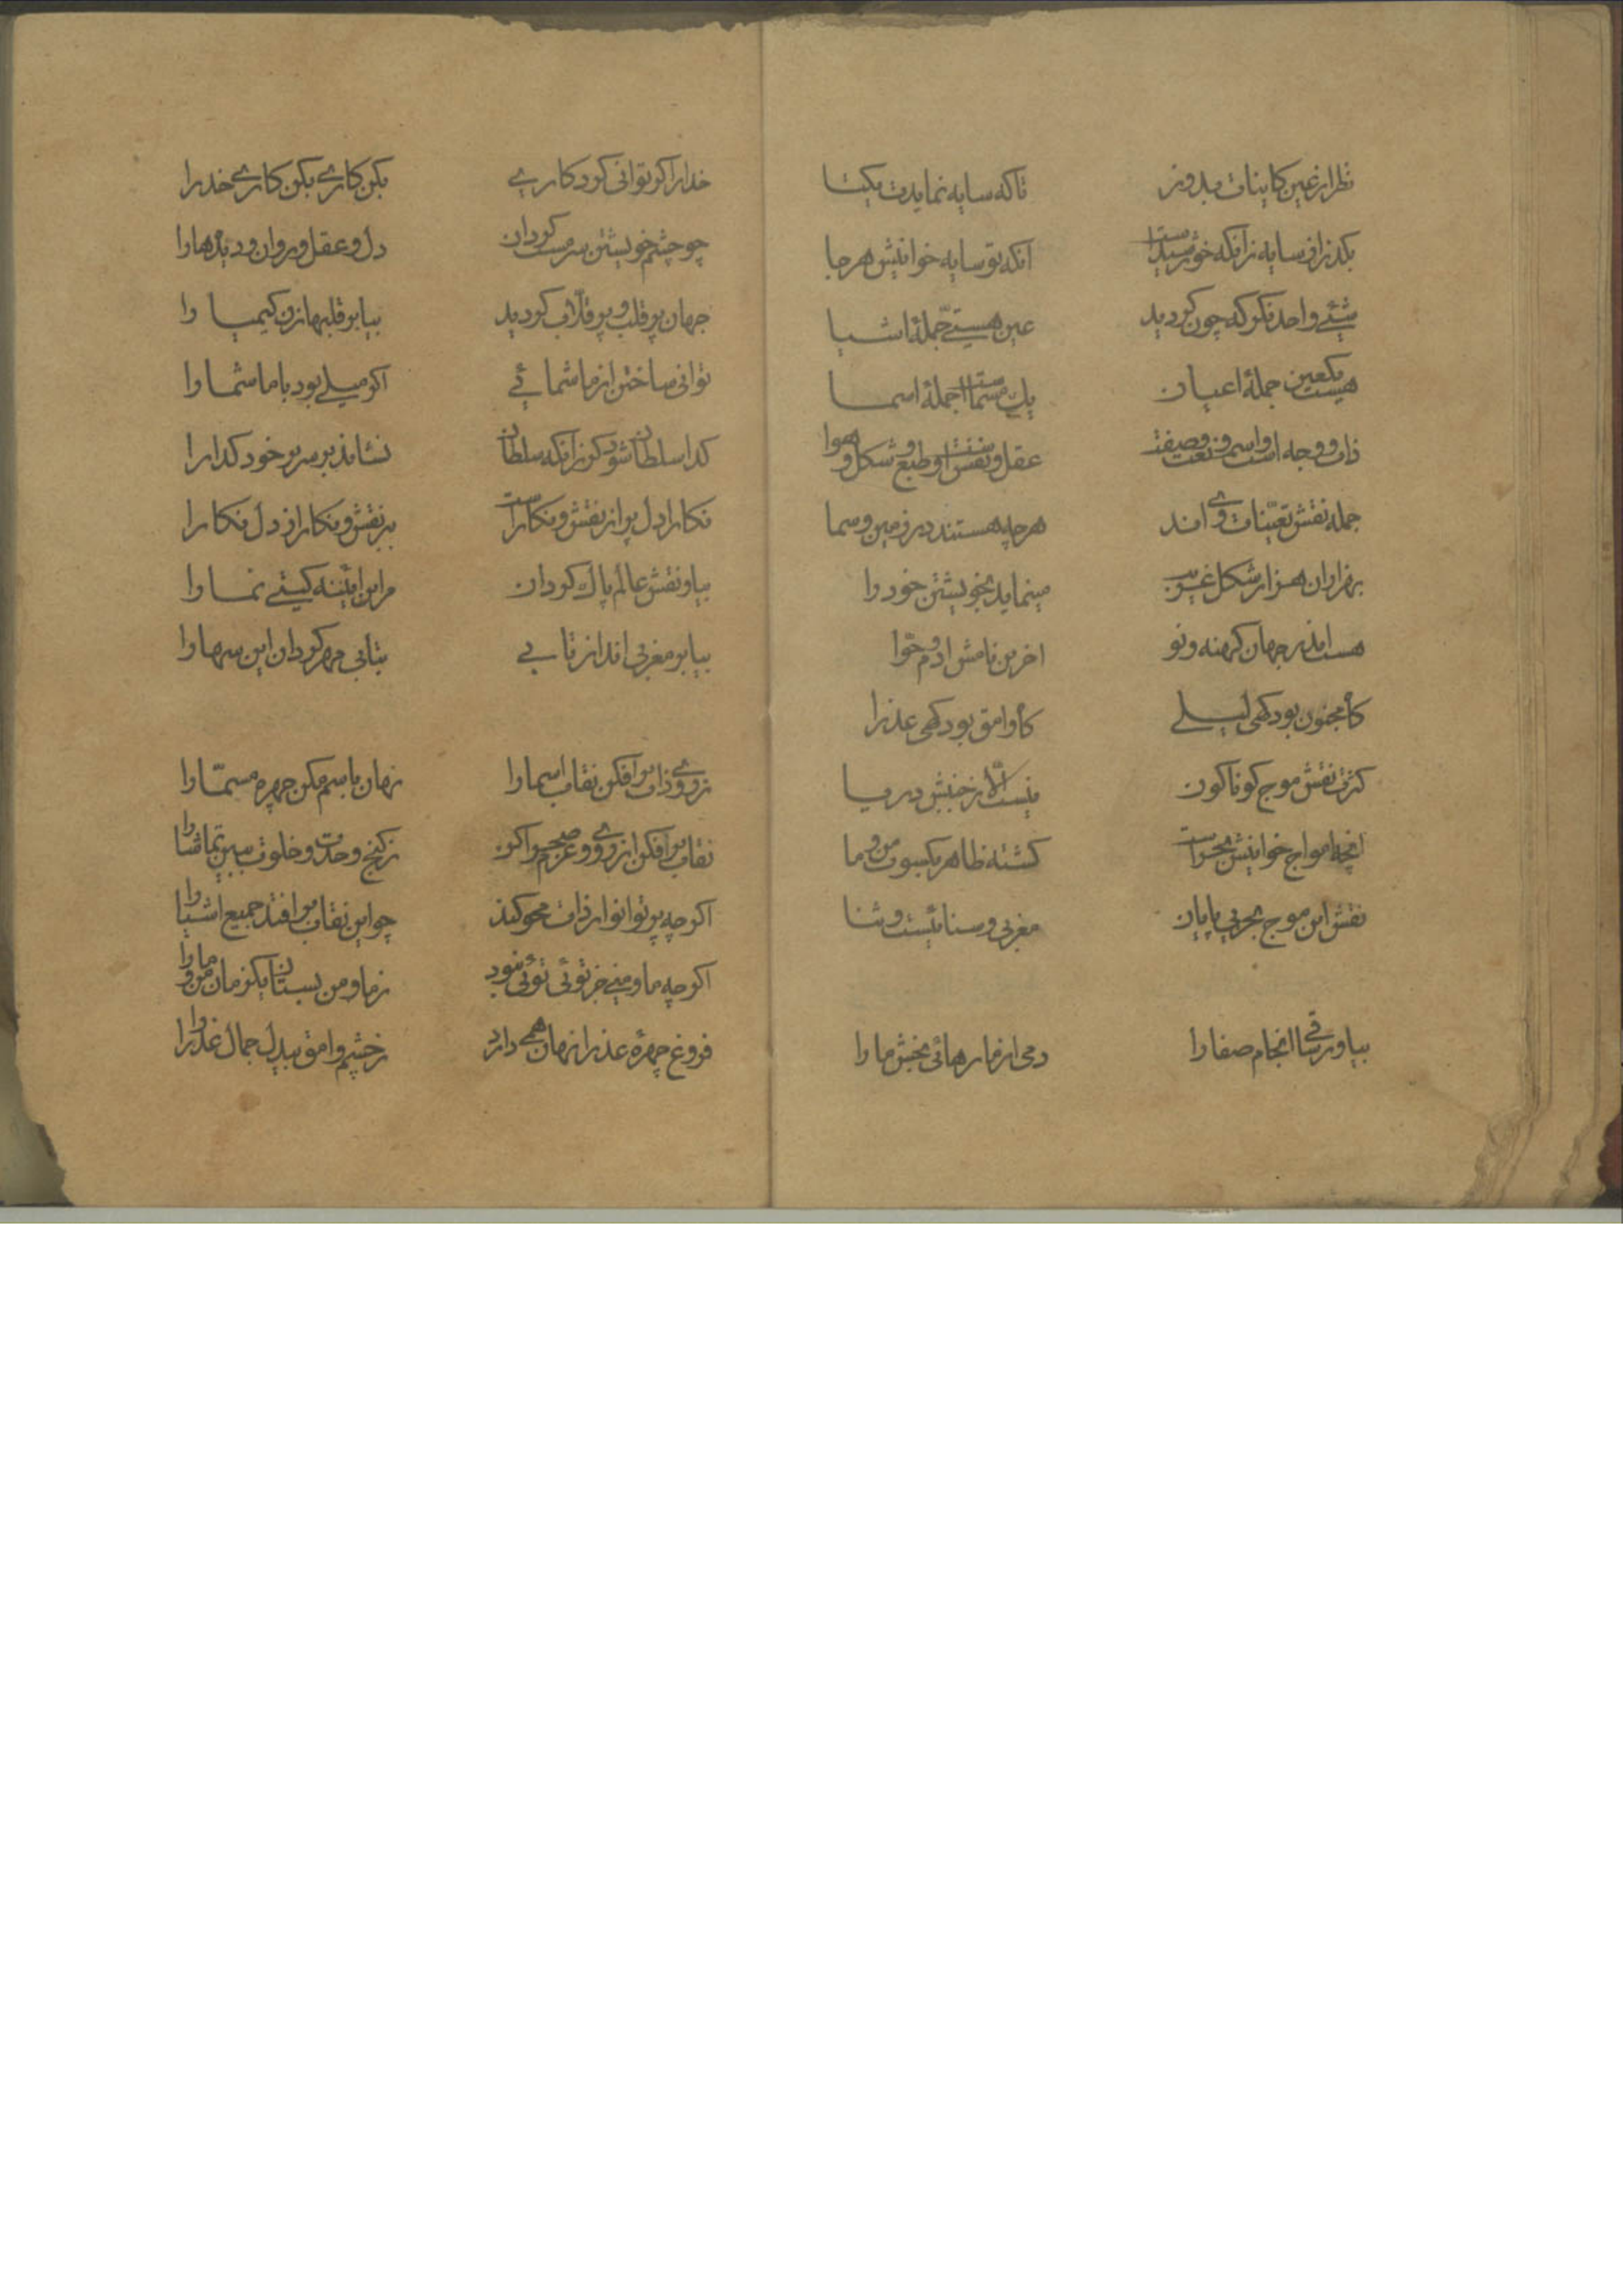 نظر از عین کاینات بدوز
تا که سایه نمایدت یکتا
بگذر از سایه زانکه خورشیدست
آنکه تو سایه خوانیش هرجا
شیئی واحد نگر که چون گردید
عین هستی جملهٔ اشیا
هست یکعین جملهٔ اعیان
یک مسماست جملهٔ اسما
ذات و وجه است و اسم و نعت و صفت
عقل و نفس است و طبع و شکل و هوا
جمله نقش تعینات وی اند
هرچه هستند در زمین و سما
بهزاران هزار شکل غریب
مینماید بخویشتن خود را
هست اندر جهان کهنه و نو
آخرین نامش آدم و حوا
گاه مجنون بود کهی لیلے
گاه وامق بود کهی عذرا
کثرت نقش موج کوناکون
نیست الا ز جنبش دریا
آنچه امواج خوانیش بحرست
کشته ظاهر بکسوت من و ما
نقش این موج بحر بی پایان
مغربی و سنائیست و ثنا
بیا ورساقی انجام صفا را
دمی از ما رهائی بخش ما را
خدا را اکر توانی کرد کارے
بکن کارے بکن کارے خدرا
چو چشم خویشتن سرمست کردان
دل و عقل و روان و دیدها را
جهان پر قلب و پر قلاب کردید
بیا بر قلبها زن کیمیا را
توانی ساختن از ما شمائے
اکر میلے بود با ما شما را
کدا سلطان شود کر زانکه سلطان
نشاند بر سریر خود کدا را
نکارا دل پر از نقش و نکارست
ببر نقش و نکار از دل نکارا
بیا و نقش عالم پاک کردان
مر این آئینه کیتے نما را
بیا بر مغربی انداز تابے
بتابی مهر کردان این سها را
ز روی ذات برافکن نقاب اسما را
نهان باسم مکن چهره مسمّا را
نقاب برافکن از روی و عزم صحرا کن
ز کنج وحدت و خلوت ببین تماشا را
اکرچه پرتو انوار ذات محو کند
چو این نقاب برافتد جمیع اشیا را
اکرچه ما و منے جز توئی توئی نبود
ز ما و من بستان یکزمان من و ما را
فروغ چهره عذرا نهان همے دارد
ز چشم وامق بیدل جمال عذرا را